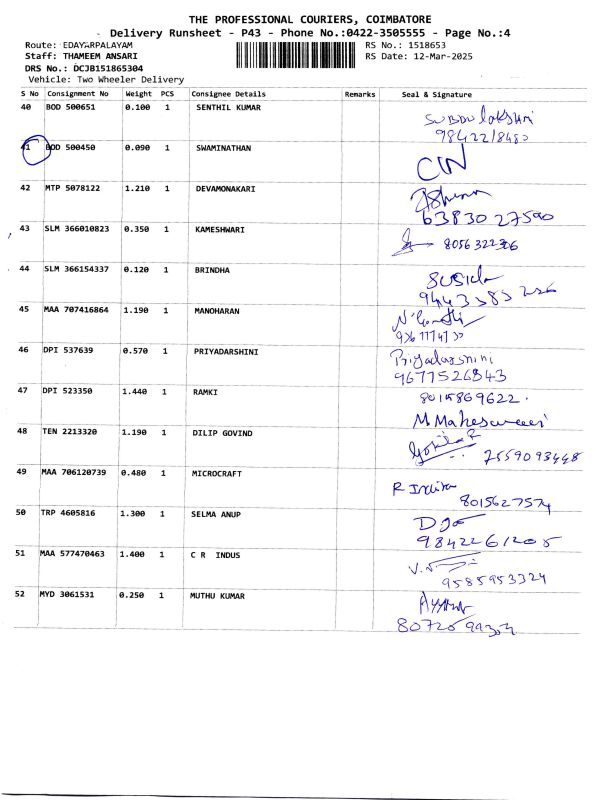 THE PROFESSIONAL COURIERS, COIMBATORE
Delivery Runsheet - P43 - Phone No.:0422-3505555 - Page No.:4
Route: EDAYARPALAYAM RS No.: 1518653
Staff: THAMEEM ANSARI RS Date: 12-Mar-2025
DRS No.: DCJB151865304
Vehicle: Two Wheeler Delivery
S No Consignment No Weight PCS Consignee Details Remarks Seal & Signature
40 BOD 500651 0.100 1 SENTHIL KUMAR
41 BOD 500450 0.090 1 SWAMINATHAN
42 MTP 5078122 1.210 1 DEVAMONAKARI
63830 27590
43 SLM 366010823 0.350 1 KAMESHWARI
8056322306
44 SLM 366154337 0.120 1 BRINDHA
45 MAA 707416864 1.190 1 MANOHARAN
46 DPI 537639 0.570 1 PRIYADARSHINI Priyadarshini
9677526843
47 DPI 523350 1.440 1 RAMKI 8015869622.
M Maheswari
48 TEN 2213320 1.190 1 DILIP GOVIND
7559093448
49 MAA 706120739 0.480 1 MICROCRAFT R Indira
8015627574
50 TRP 4605816 1.300 1 SELMA ANUP
9842261205
51 MAA 577470463 1.400 1 C R INDUS
9585953324
52 MYD 3061531 0.250 1 MUTHU KUMAR